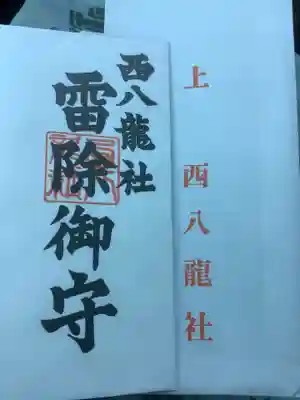 上 西八龍社
西八龍社
雷除御守